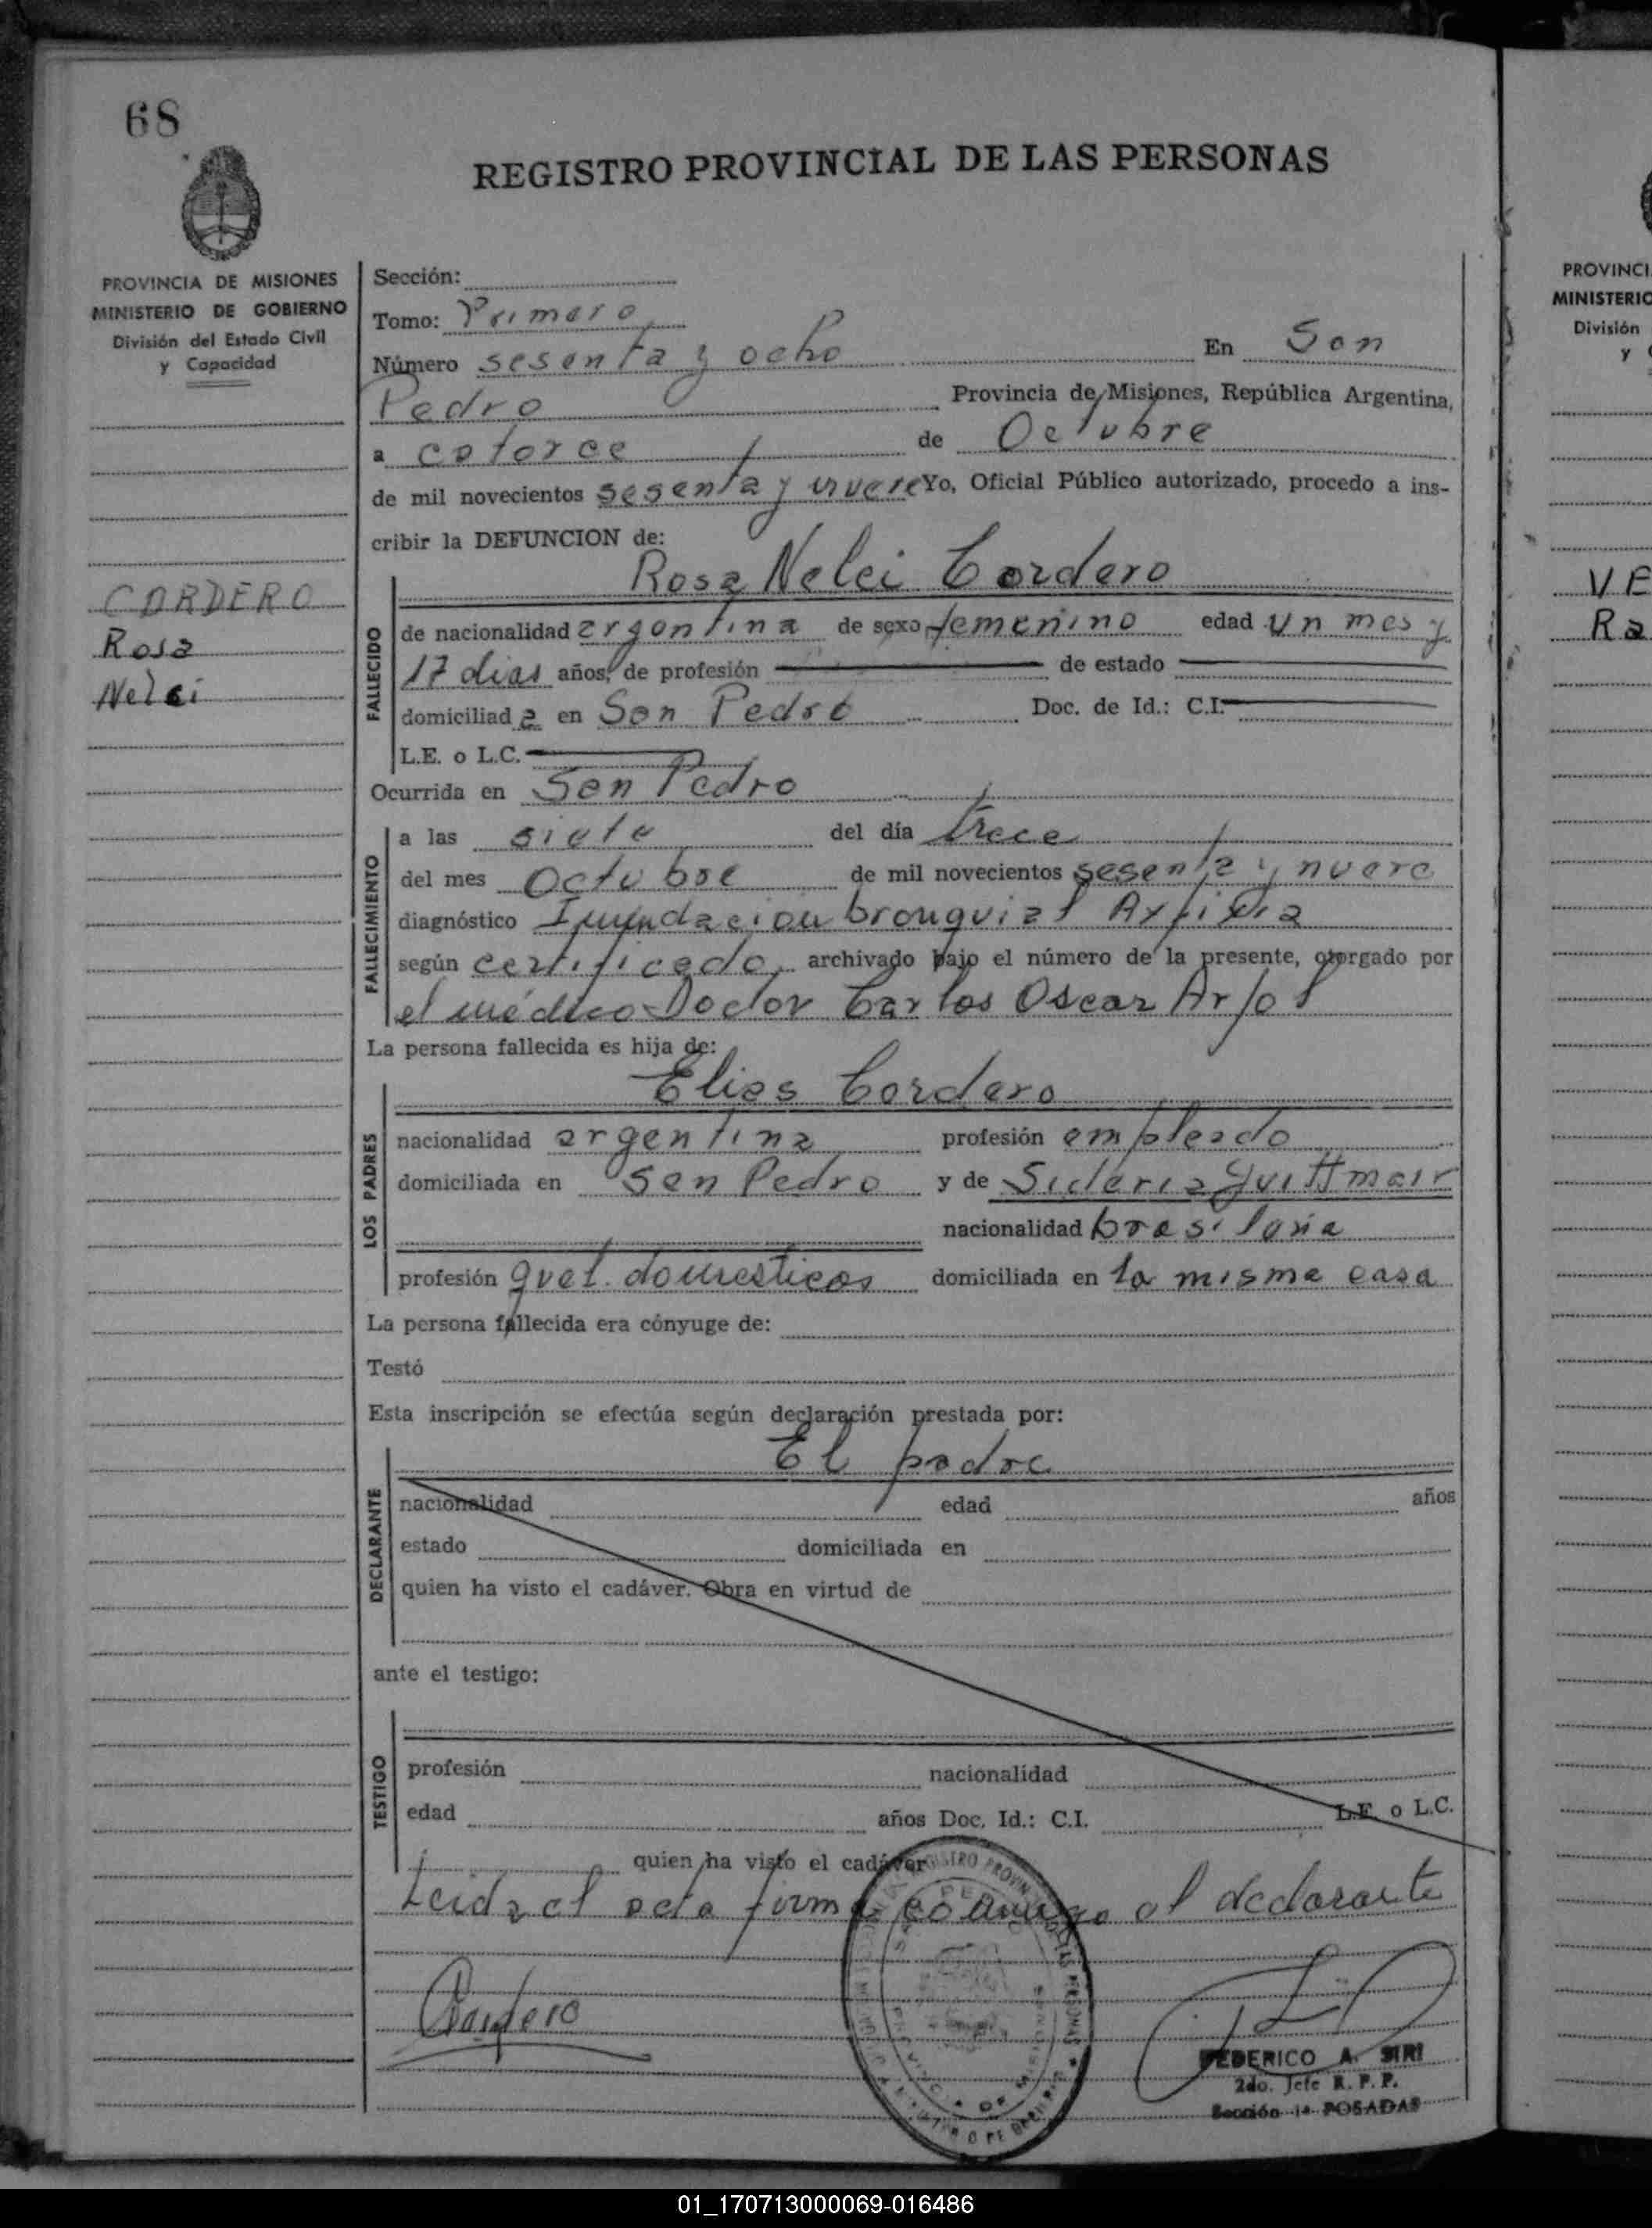 68
REGISTRO PROVINCIAL DE LAS PERSONAS
PROVINCIA DE MISIONES
MINISTERIO DE GOBIERNO
División del Estado Civil
y Capacidad
CORDERO
Rosa
Nelci
Sección:
Tomo: Primero
Número sesenta y ocho En San
Pedro Provincia de Misiones, República Argentina,
a catorce de Octubre
de mil novecientos sesenta y nueve Yo, Oficial Público autorizado, procedo a ins-
cribir la DEFUNCION de:
Rosa Nelci Cordero
FALLECIDO
de nacionalidad argentina de sexo femenino edad un mes y
17 dias años, de profesión de estado
domiciliad a en San Pedro Doc. de Id.: C.I.
L.E. o L.C.
Ocurrida en San Pedro
FALLECIMIENTO
a las siete del día trece
del mes Octubre de mil novecientos sesenta y nueve
diagnóstico Inundacion bronquial Axfixia
según certificado, archivado bajo el número de la presente, otorgado por
el médico Doctor Carlos Oscar
La persona fallecida es hija de:
Elias Cordero
LOS PADRES
nacionalidad argentina profesión empleado
domiciliada en San Pedro y de
nacionalidad brasilera
profesión quet. domesticos domiciliada en la misma casa
La persona fallecida era cónyuge de:
Testó
Esta inscripción se efectúa según declaración prestada por:
El padre
DECLARANTE
nacionalidad edad años
estado domiciliada en
quien ha visto el cadáver. Obra en virtud de
ante el testigo:
TESTIGO
profesión nacionalidad
edad años Doc. Id.: C.I. L.E. o L.C.
quien ha visto el cadáver
Leida el acta firma conmigo el declarante
Cordero
REGISTRO PROVINCIAL DE LAS PERSONAS
SAN PEDRO
PROVINCIA DE MISIONES
FEDERICO A. SIRI
2do. Jefe R. P. P.
Sección 1ª POSADAS
PROVINCI
MINISTERIO
División
y
VE
Ra
01_170713000069-016486